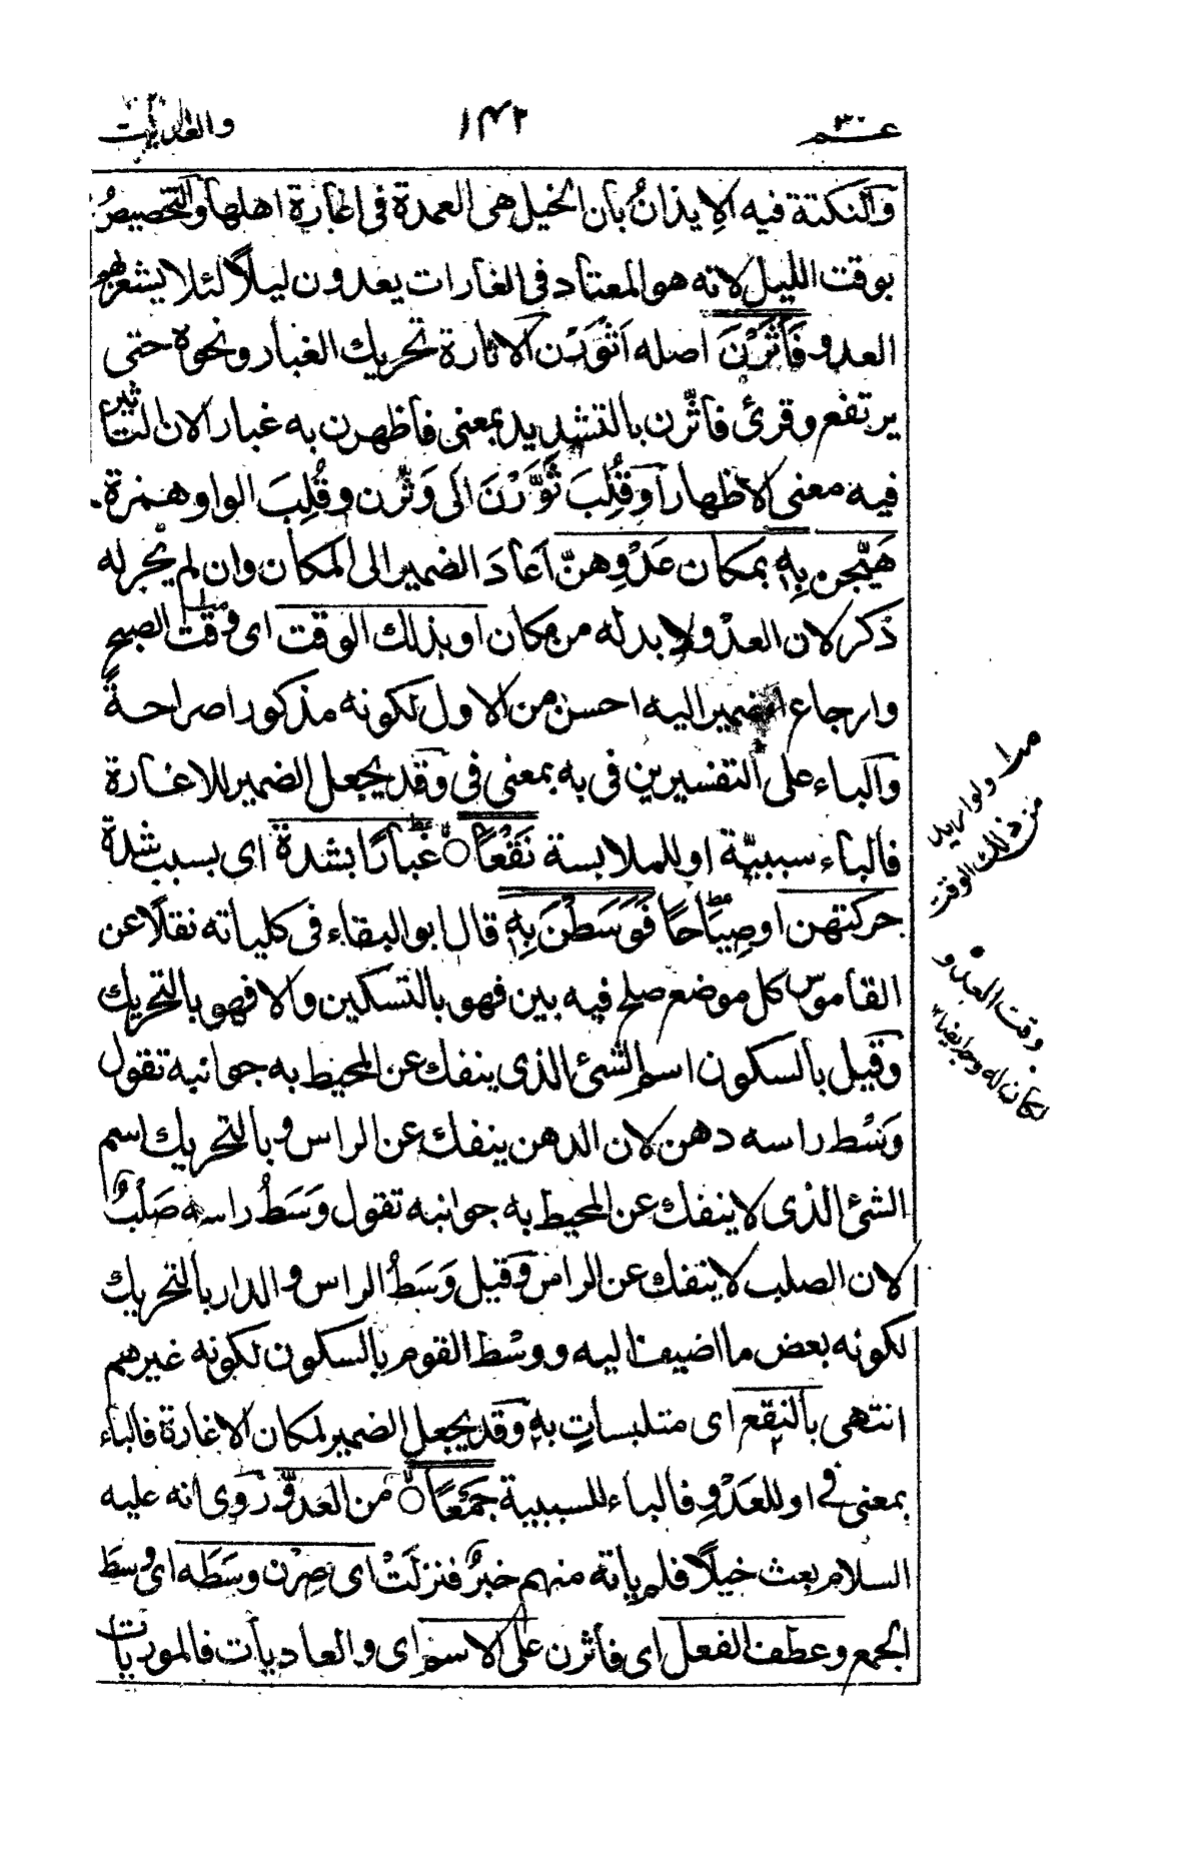 عم ٣٠
١٤٢
والعٰديٰت
والنكتة فيه الايذانُ بان الخيل هى العمدة فى اغارة اهلها والتخصيصُ
بوقت الليل لانه هو المعتاد فى الغارات يعدون ليلًا لئلا يشعر بهم
العدو فَاَثَرْنَ اصله اَثْوَرْن الاثارة تحريك الغبار ونحوه حتى
يرتفع وقرئ فاثّرن بالتشديد بمعنى فاظهرن به غبار الان التاثير
فيه معنى الاظهار او قُلِبَ ثَوَّرْنَ الى وَثَّرن وقُلِبَ الواو همزة
هَيَّجن بِهٖ بمكان عَدْوِهنّ اَعَادَ الضمير الى المكان وان لم يَجْرِ له
ذكر لان العدْو لا بد له من مكان او بذلك الوقت اى وقت الصبح
وارجاع الضمير اليه احسن من الاول لكونه مذكورا صراحةً
والباء على التفسيرين فى به بمعنى فى وقد يجعل الضمير للاغارة
فالباء سببيّة او للملابسة نَقْعًا غُبارًا بشدة اى بسبب شدة
حركتهن او صِيَاحًا فَوَسَطْنَ بِهٖ قال ابو البقاء فى كلياته نقلًا عن
القاموس كل موضع صلح فيه بين فهو بالتسكين والا فهو بالتحريك
وقيل بالسكون اسم الشئ الذى ينفك عن المحيط به جوانبه تقول
وَسْط راسه دهن لان الدهن ينفك عن الراس وبالتحريك اسم
الشئ الذى لا ينفك عن المحيط به جوانبه تقول وَسَطُ راسه صَلْبٌ
لان الصلب لا ينفك عن الراس وقيل وَسَطُ الراس والدار بالتحريك
لكونه بعض ما اضيف اليه ووسْط القوم بالسكون لكونه غيرهم
انتهى بالنقع اى متلبساتٍ به وقد يجعل الضمير لمكان الاغارة فالباء
بمعنى فى او للعَدْوِ فالباء للسببية جَمْعًا من العدوّ رُوى انه عليه
السلام بعث خيلًا فلم ياته منهم خبرٌ فنزلَتْ اى صِرْن وسَطَه اى وسط
الجمع وعطف الفعل اى فاثرن على الاسم اى والعاديات فالموريات
ولو اريد
من ذلك الوقت
وقت العدو
لكان له وجه ايضا ١٢